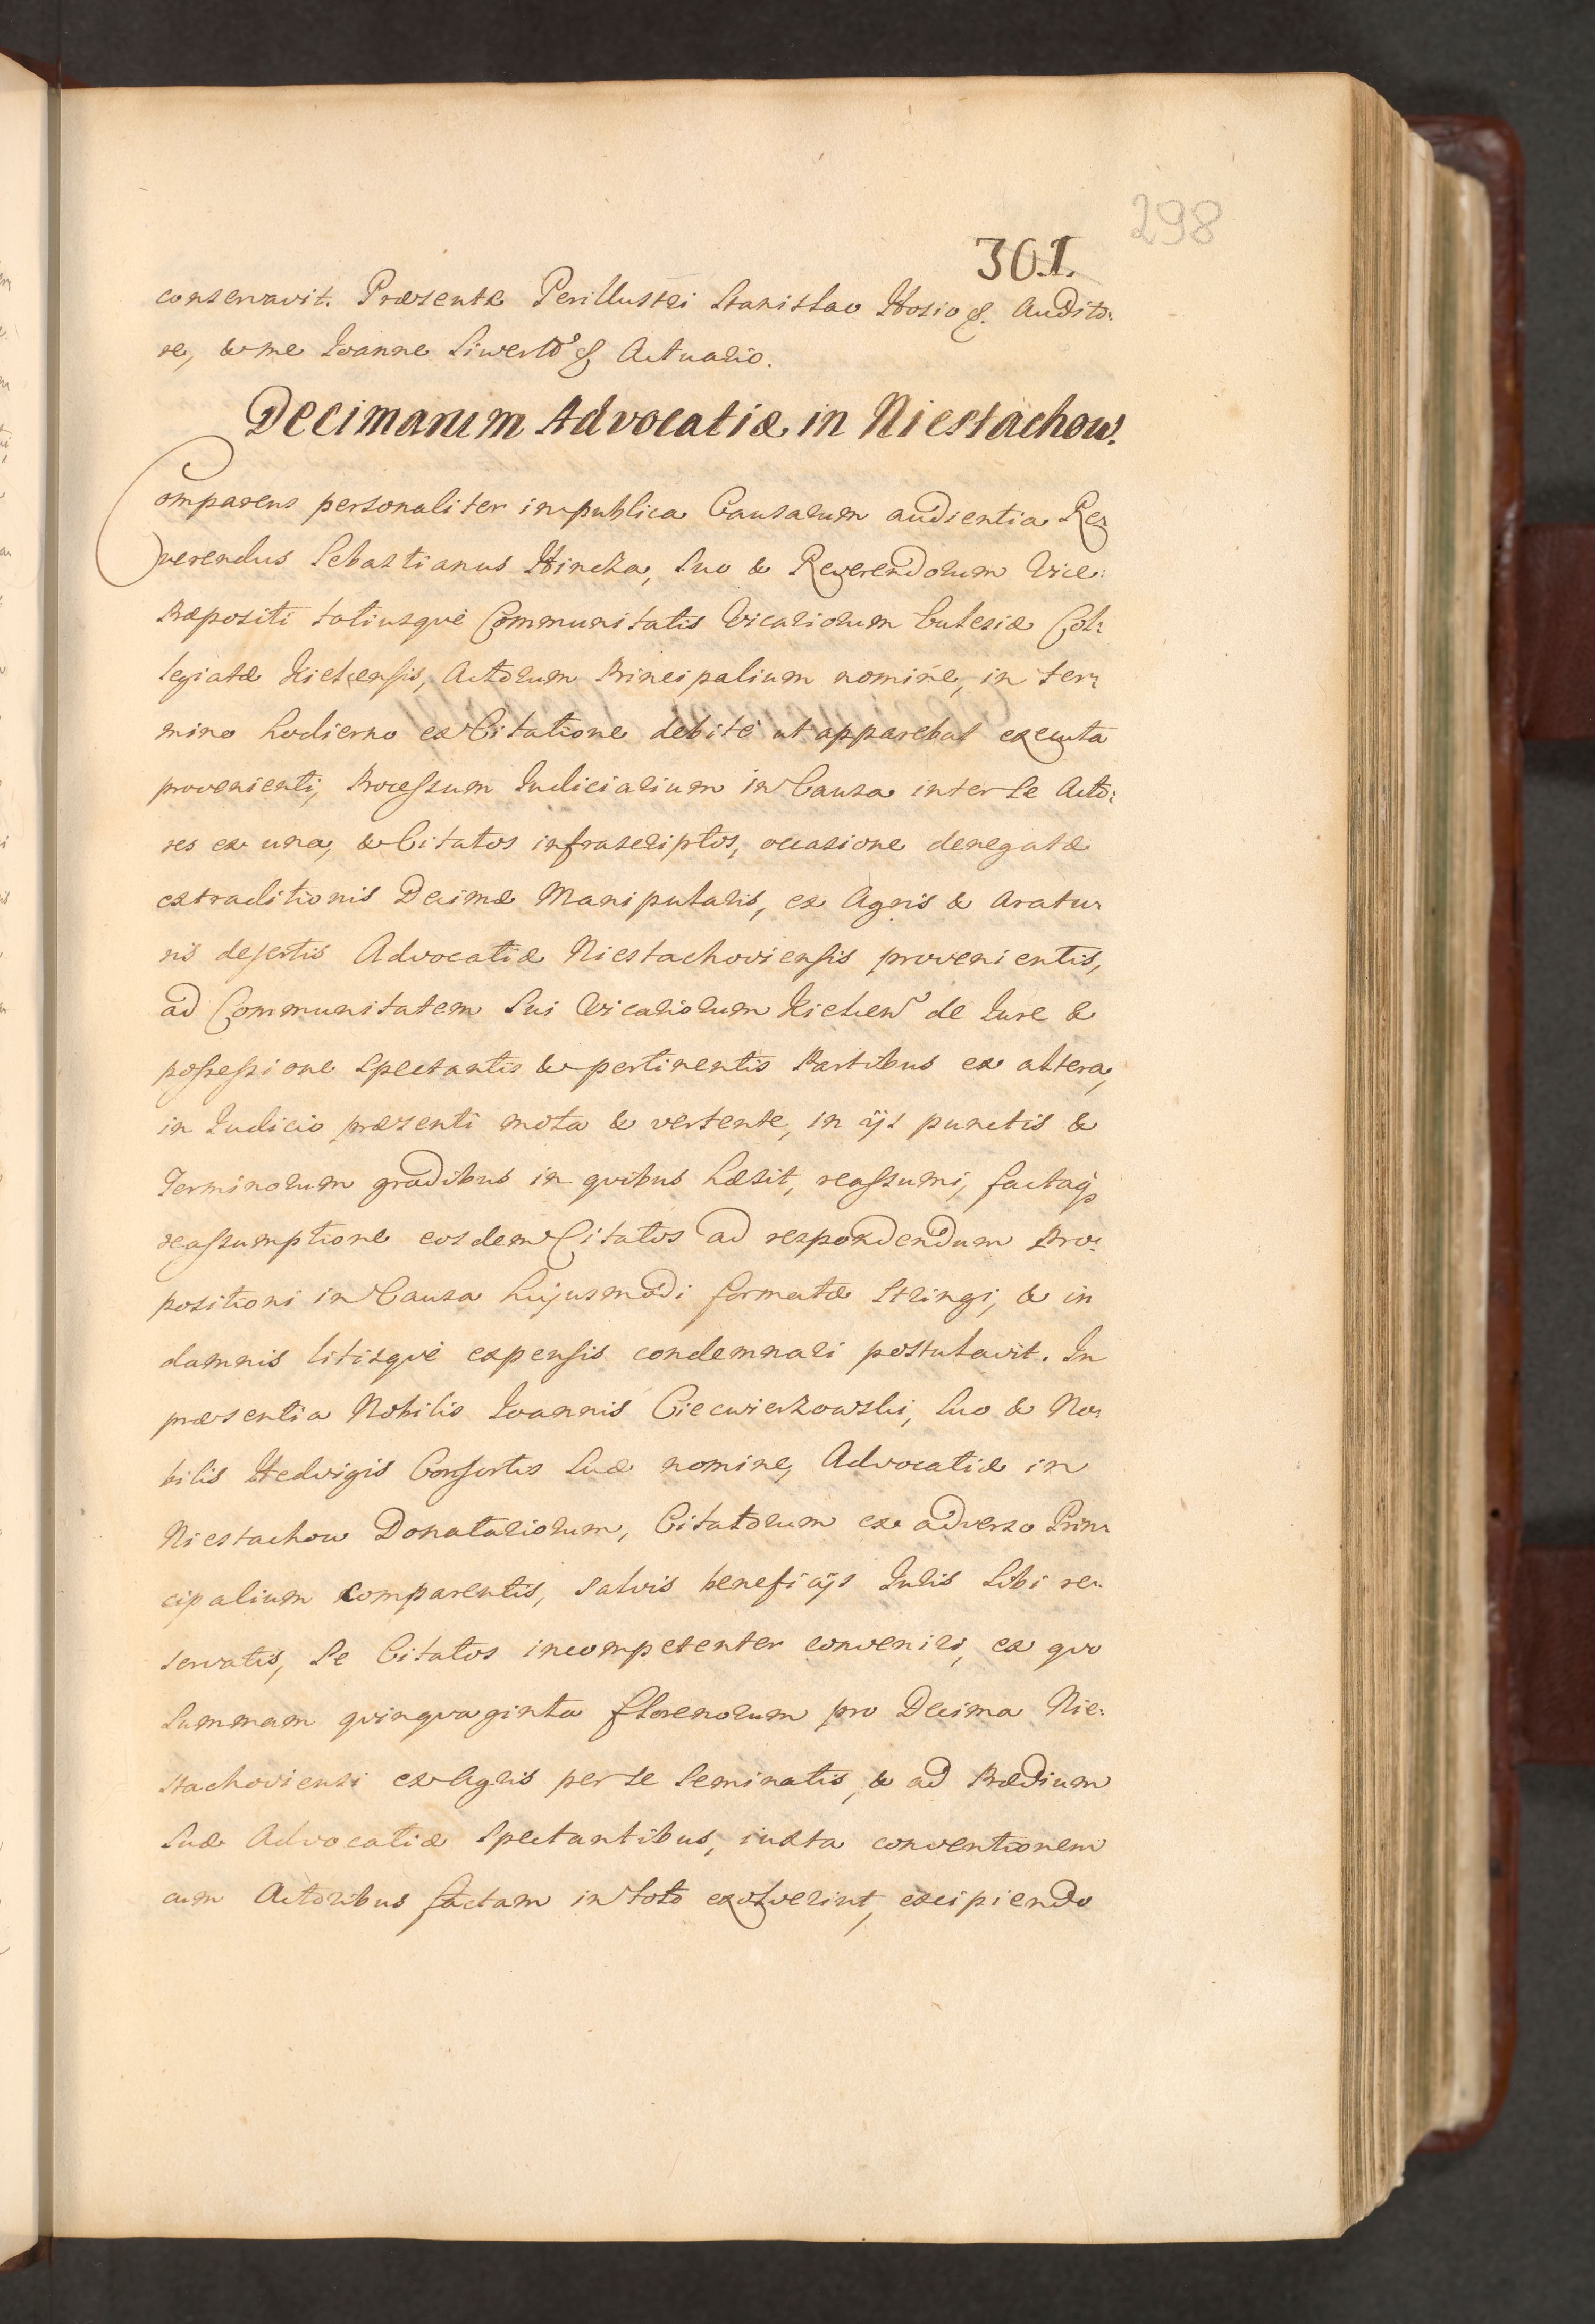 298
301.
conservavit. Præsente Perillustri Stanislao Hosio &. Audito:
re, & me Ioanne Siwert & Actuario.
Decimarum Advocatiæ in Niestachow.
Comparens personaliter in publica Causarum audientia Re
verendus Sebastianus Hincza, Suo & Reverendorum Vice:
Præpositi totiusqve Communitatis Vicariorum Ecclesiæ Col:
legiatæ Kielcensis, Actorum Principalium nomine, in ter:
mino hodierno ex Citatione debite ut apparebat executa
provenienti, Processum Iudiciarium in Causa inter Se Acto:
res ex una, & Citatos infrascriptos, occasione denegatæ
extraditionis Decimæ Manipularis, ex Agris & Aratu:
ris desertis Advocatiæ Niestachoviensis provenientis,
ad Communitatem Sui Vicariorum Kielcen de Iure &
possessione Spectantis & pertinentis Partibus ex altera,
in Iudicio præsenti mota & vertente, in ijs punctis &
Terminorum gradibus in qvibus hæsit, reassumi, factaq
reassumptione eosdem Citatos ad respondendum Pro:
positioni in Causa hujusmodi formatæ stringi, & in
damnis litisqve expensis condemnari postulavit. In
præsentia Nobilis Ioannis Ciecwierzowski, Suo & No:
bilis Hedvigis Consortis Suæ nomine, Advocatiæ in
Niestachow Donatariorum, Citatorum ex adverso Prin:
cipalium comparentis, salvis beneficijs Iuris Sibi re:
servatis, Se Citatos incompetenter conveniri, ex qvo
Summam qvinqvaginta florenorum pro Decima Nie:
stachoviensi ex Agris per Se Seminatis, & ad Prædium
Suæ Advocatiæ Spectantibus, iuxta conventionem
cum Actoribus factam in toto exolverint, excipiendo